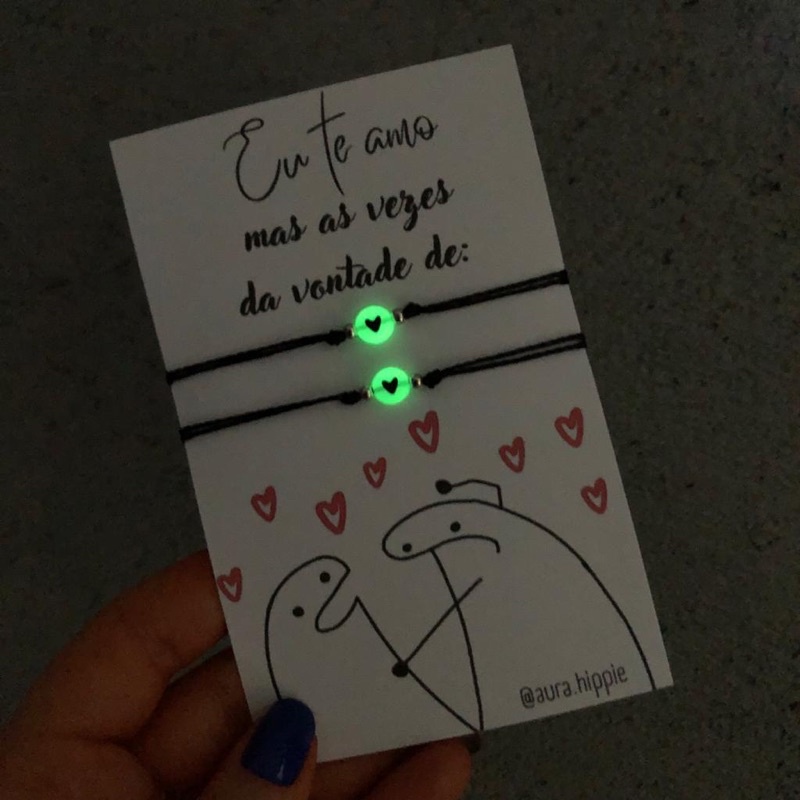 Eu te amo
mas as vezes
da vontade de:
@aura.hippie